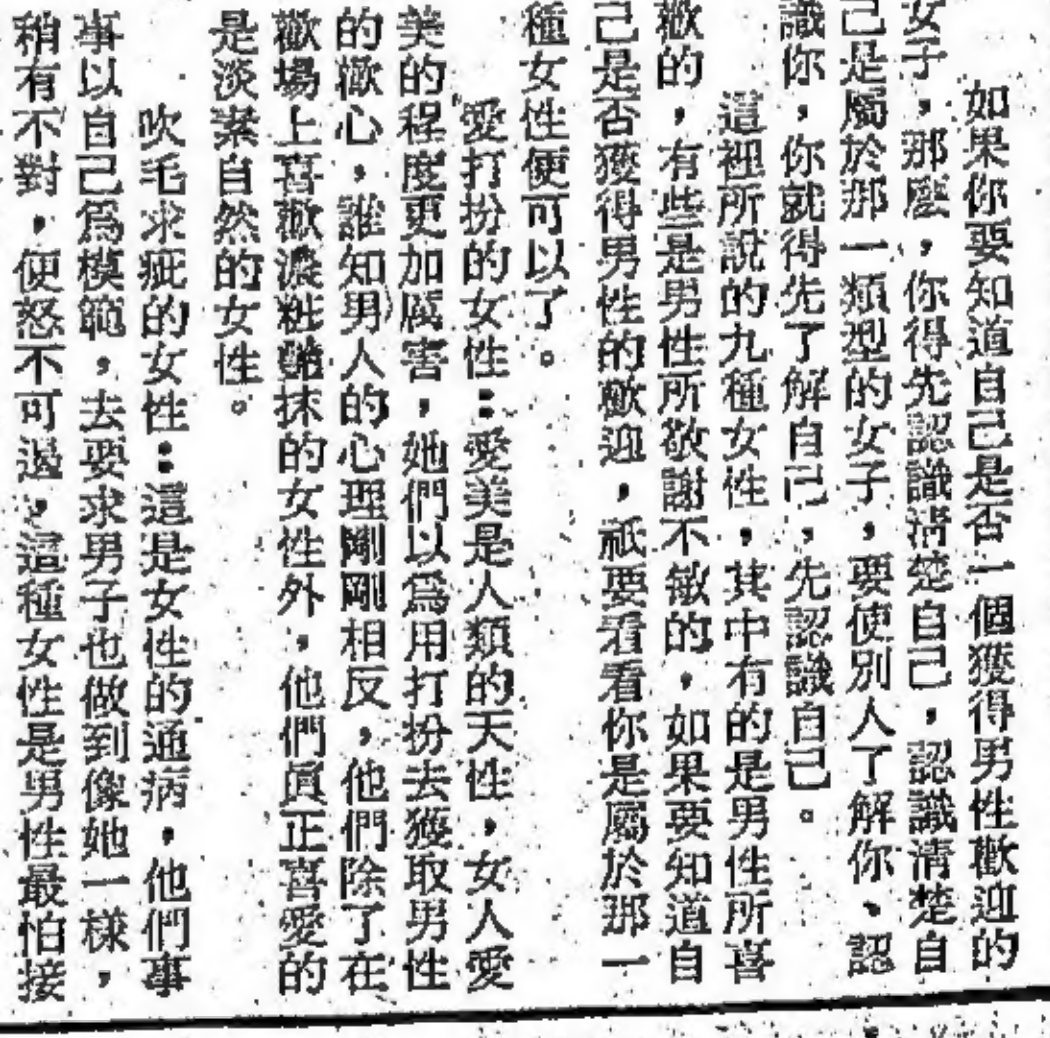 如果你要知道自己是否一個獲得男性歡迎的
女子，那麽，你得先認識清楚自己，認識清楚自
己是屬於那一類型的女子，要使別人了解你、認
識你，你就得先了解自己，先認識自己。
這裡所說的九種女性，其中有的是男性所喜
歡的，有些是男性所敬謝不敏的，如果要知道自
己是否獲得男性的歡迎，祇要看看你是屬於那一
種女性便可以了。
愛打扮的女性：愛美是人類的天性，女人愛
美的程度更加厲害，她們以爲用打扮去獲取男性
的歡心，誰知男人的心理剛剛相反，他們除了在
歡場上喜歡濃粧艶抹的女性外，他們眞正喜愛的
是淡素自然的女性。
吹毛求疵的女性：這是女性的通病，他們事
事以自己爲模範，去要求男子也做到像她一樣，
稍有不對，便怒不可遏，這種女性是男性最怕接